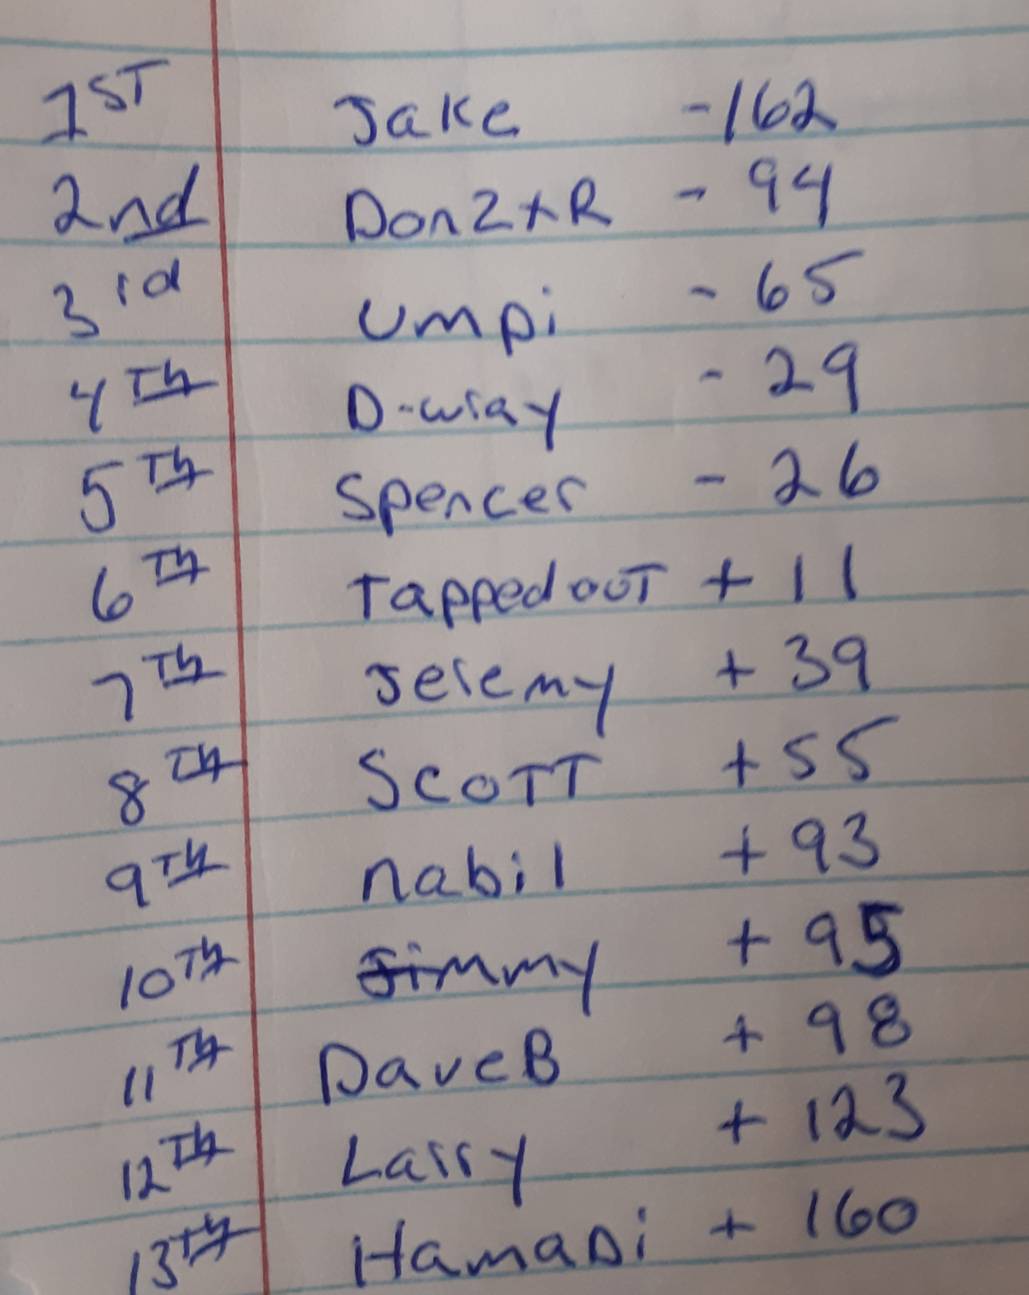 1ST Jake -162
2nd Don2+R - 94
3rd Umpi - 65
4TH D-wray - 29
5TH Spencer - 26
6TH Tapped ouT + 11
7TH Jeremy + 39
8TH ScoTT + 55
9TH nabil + 93
10TH Jimmy + 95
11TH DaveB + 98
12TH Larry + 123
13TH HamaDi + 160